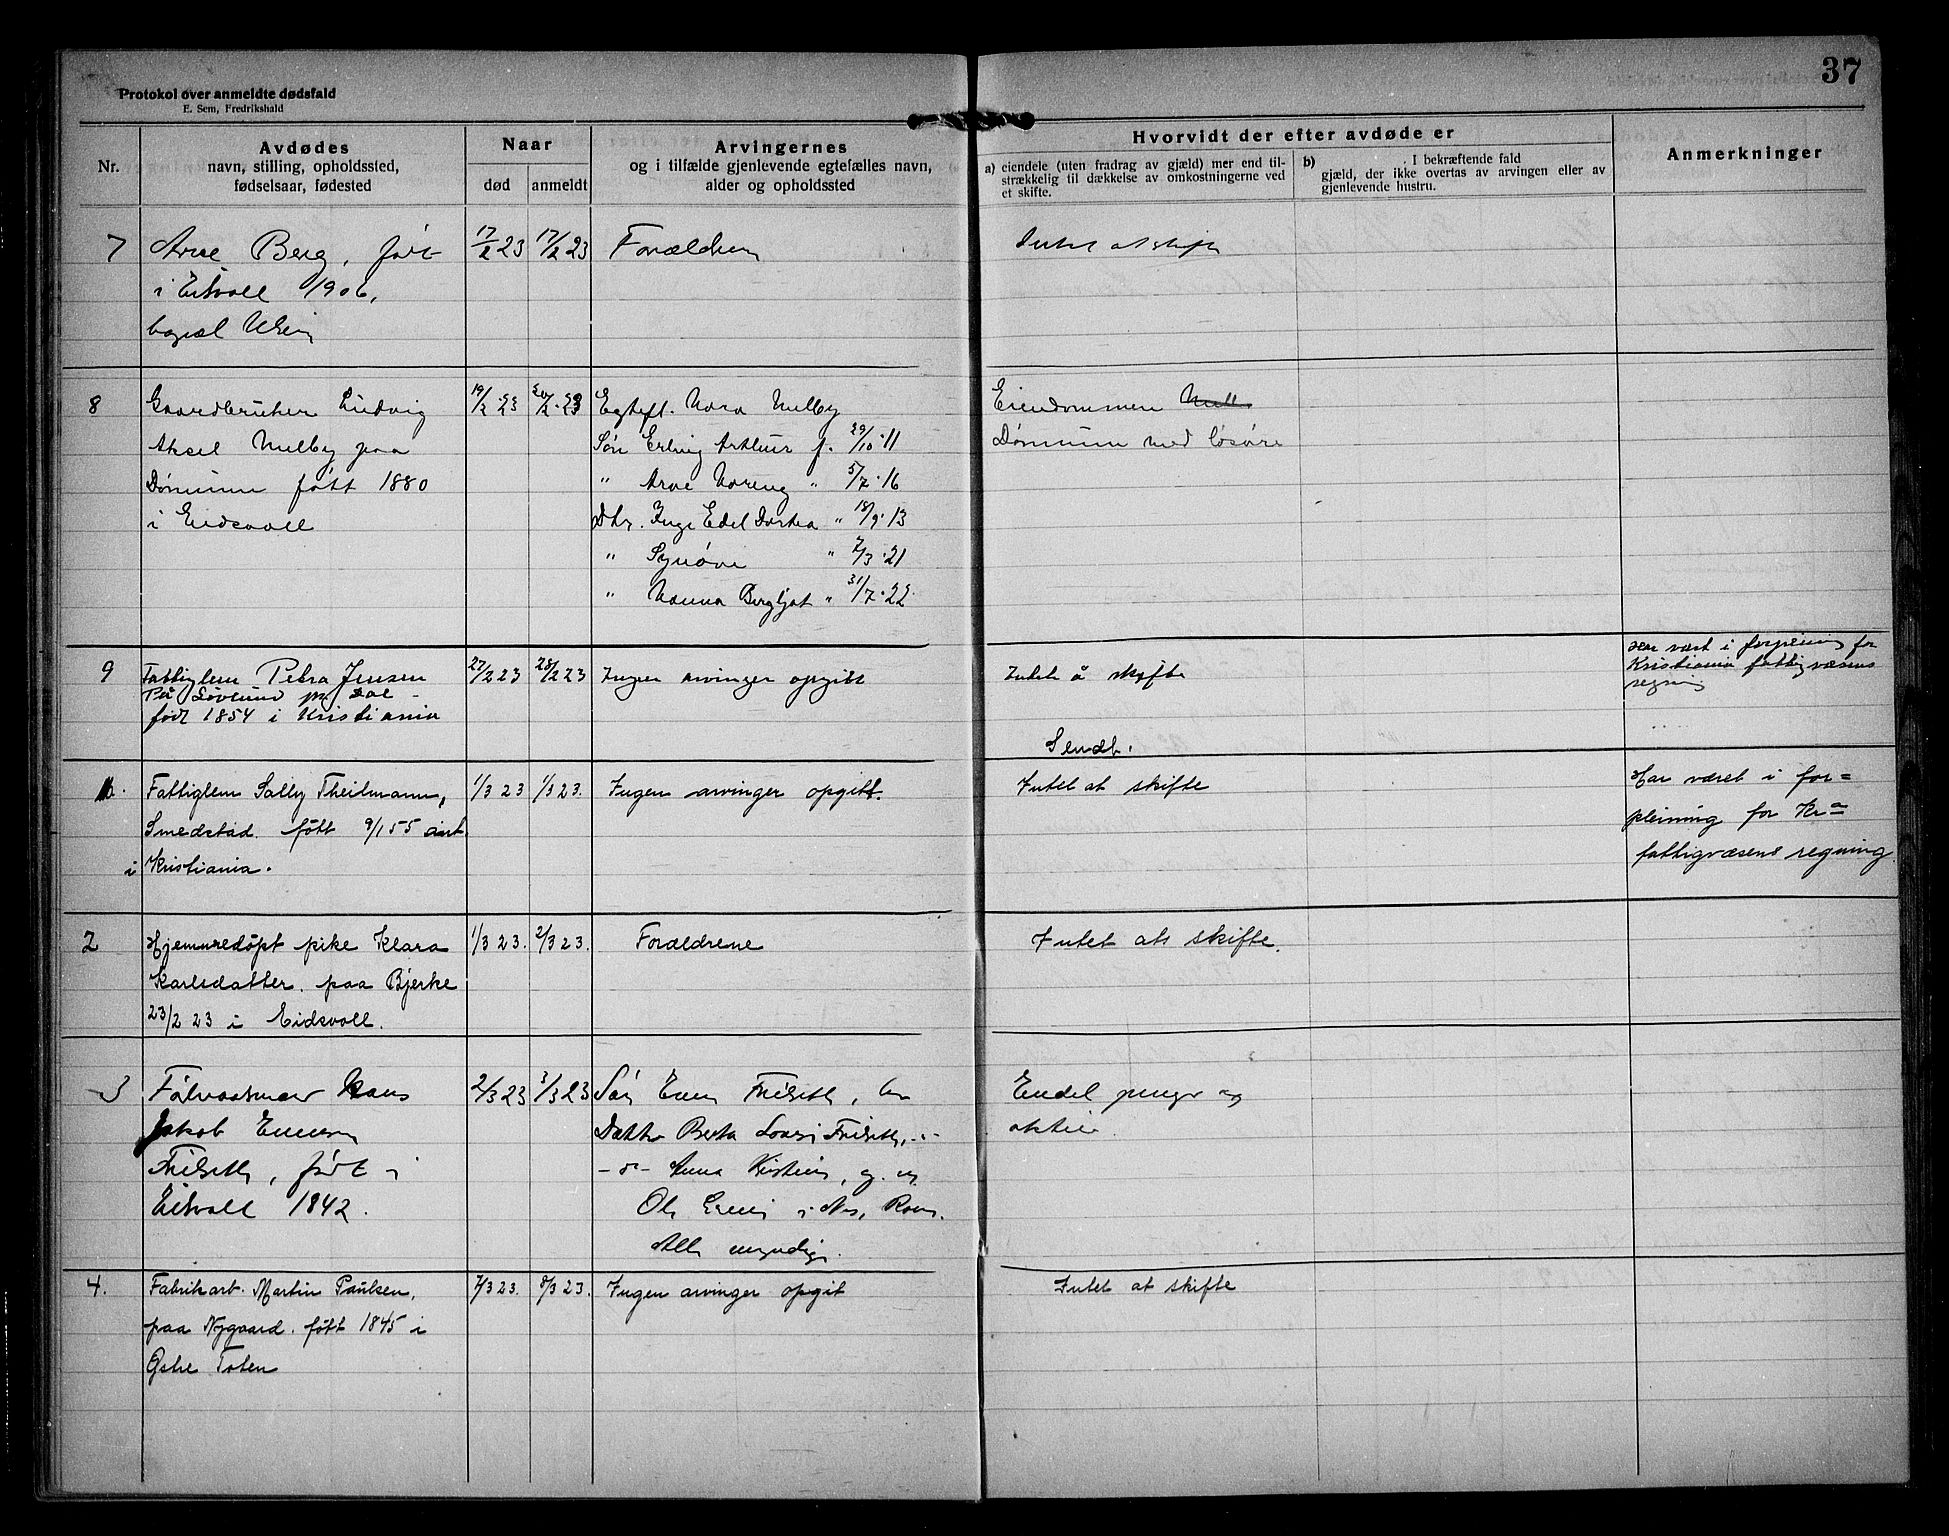 37
Protokol over anmeldte dødsfald
E. Sem, Fredrikshald
Nr.
Avdødes
navn, stilling, opholdssted,
fødselsaar, fødested
Naar
død
anmeldt
Arvingernes
og i tilfælde gjenlevende egtefælles navn,
alder og opholdssted
Hvorvidt der efter avdøde er
a) eiendele (uten fradrag av gjæld) mer end til-
strækkelig til dækkelse av omkostningerne ved
et skifte.
b) I bekræftende fald
gjæld, der ikke overtas av arvingen eller av
gjenlevende hustru.
Anmerkninger
7
Arne Berg, født
i Eidsvoll 1906,
17/2 23
17/2 23
Forældrene
Intet at skifte
8
Gaardbruker Ludvig
Aksel Melby paa
Dønnum født 1880
i Eidsvoll
19/2 23
20/2 23
Egtef. Nora Melby
Søn Erling Arthur f. 29/10 11
" Arve Noreng " 5/7 16
Dtr. Inga Edel Dortea " 18/9 13
" Synøve " 7/3 21
" Nanna Bergljot " 31/7 22
Eiendommen
Dønnum med løsøre
9
Fattiglem Petra Jensen
På Løvlund pr Dal -
født 1854 i Kristiania
27/2 23
28/2 23
Ingen arvinger opgitt
Intet å skifte
Sendt.
Har vært i forpleining for
Kristiania fattigvæsens
regning
Fattiglem Sally Theilmann,
Smedstad. født 9/1 55
i Kristiania.
1/3 23
1/3 23.
Ingen arvinger opgitt.
Intet at skifte
Har været i for=
pleining for Kra=
fattigvæsens regning.
2
Hjemmedøpt pike Klara
Karlsdatter. paa Bjerke
23/2 23 i Eidsvoll.
1/3 23.
2/3 23.
Forældrene
Intet at skifte.
3
Hans
Jakob Evensen
født i
Eidsvoll 1842.
2/3 23
3/3 23
Søn Even
Datter Berta
-"- Anna Kristine, g. m.
Ole i Nes, Rom.
Alle myndige.
Endel penger og
aktier.
4.
Fabrikarb. Martin Paulsen,
paa Nygaard. født 1845 i
Østre Toten
7/3 23.
8/3 23.
Ingen arvinger opgit
Intet at skifte